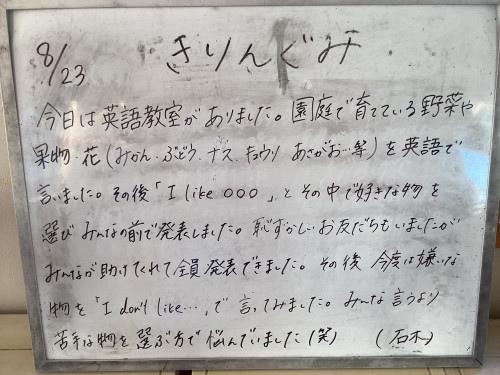 8/23 きりんぐみ
今日は英語教室がありました。園庭で育てている野菜や
果物・花(みかん、ぶどう、ナス、キュウリ あさがお…等)を英語で
言いました。その後「I like ○○○」とその中で好きな物を
選び みんなの前で発表しました。恥ずかしいお友だちもいましたが
みんなが助けてくれて全員発表できました。その後 今度は嫌いな
物を「I don't like…」で言ってみました。みんな言うより
苦手な物を選ぶ方で悩んでいました(笑) (石木)